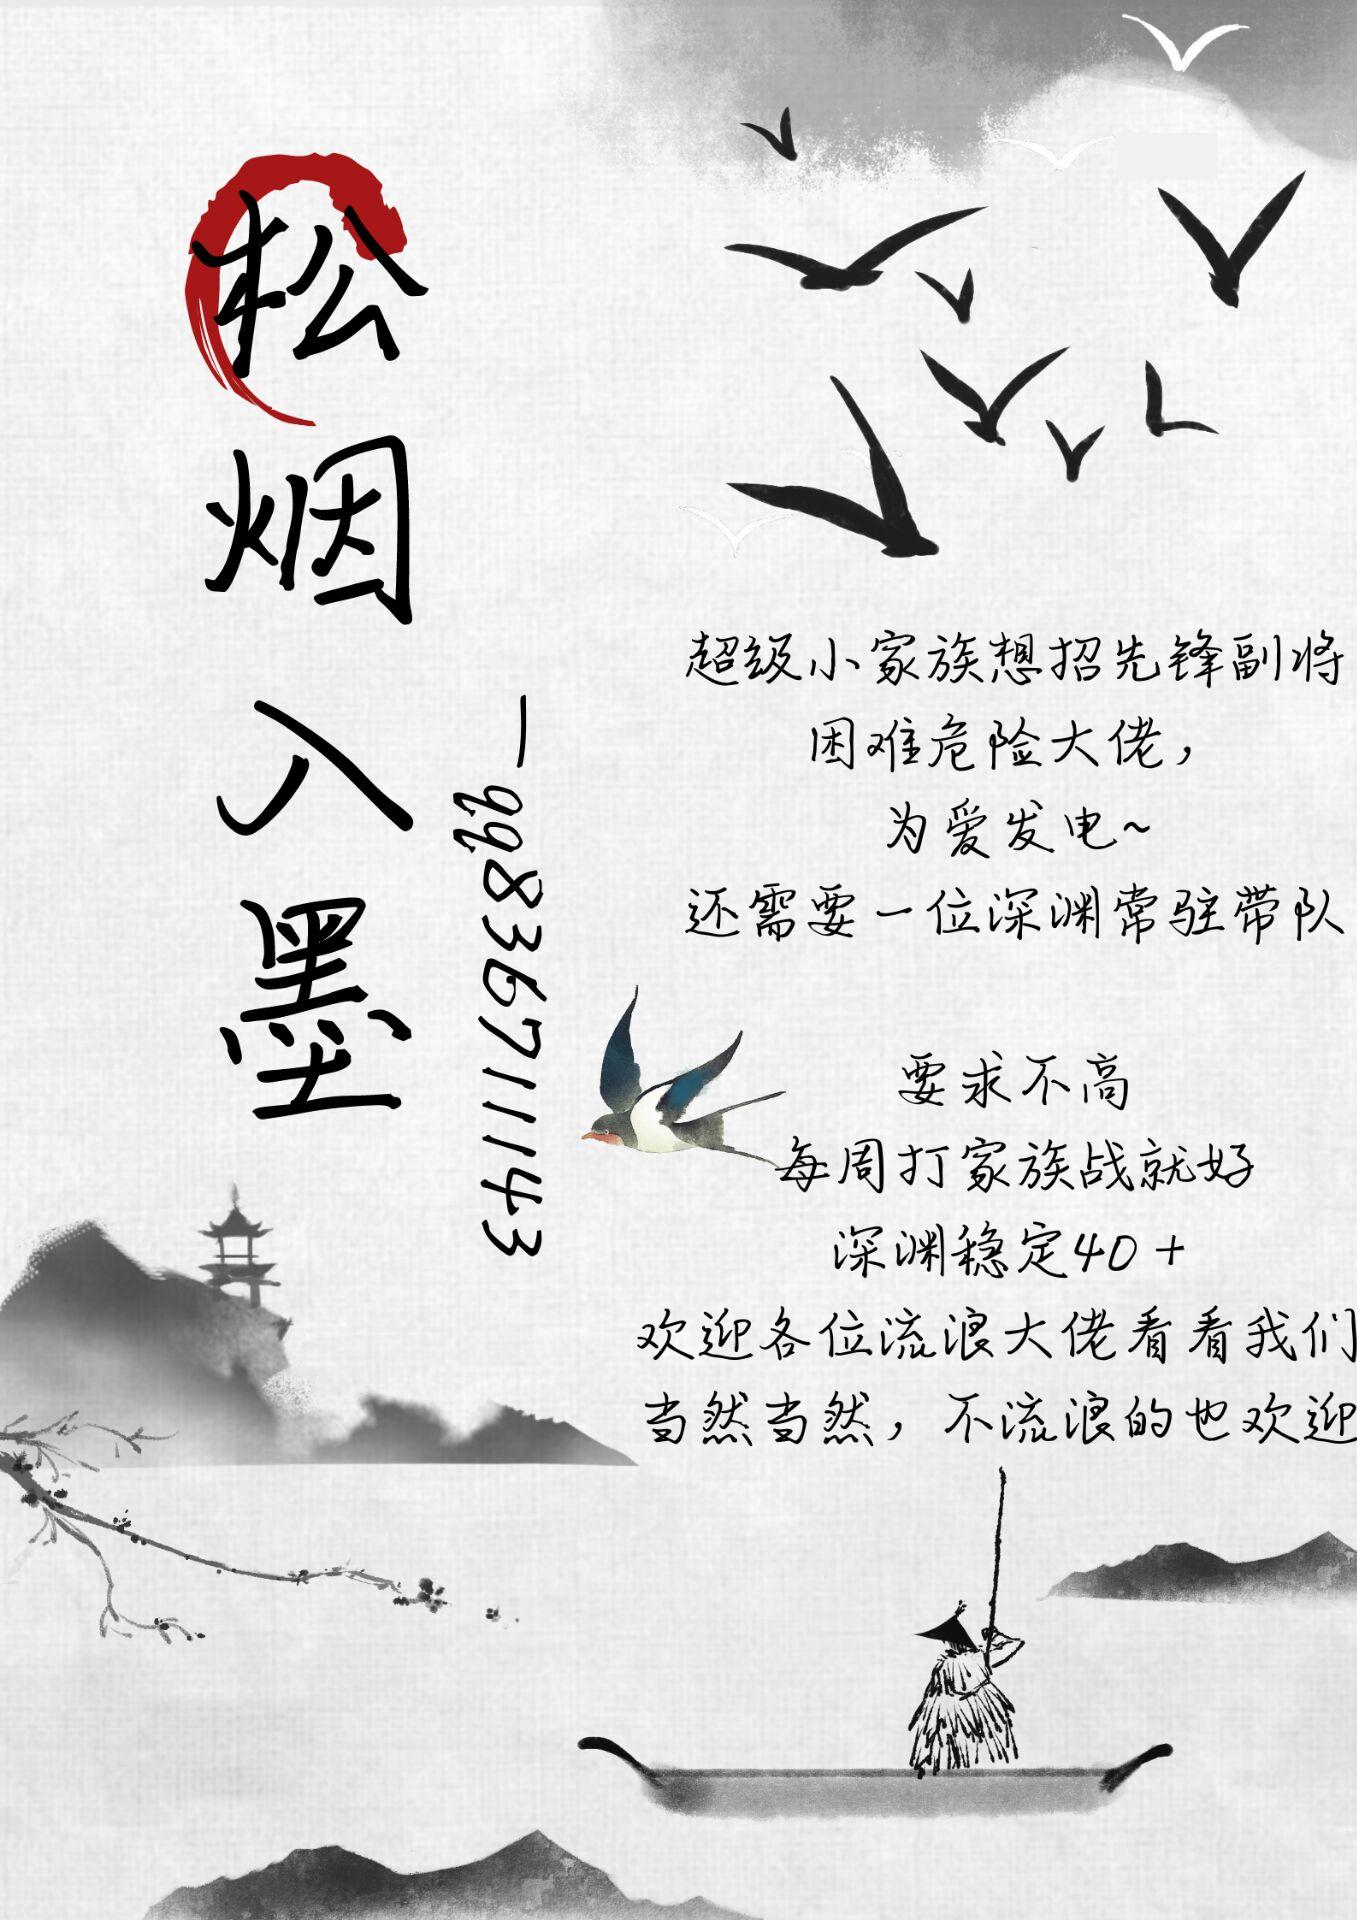 松烟入墨
—qq8367111143
超级小家族想招先锋副将
困难危险大佬，
为爱发电~
还需要一位深渊常驻带队
要求不高
每周打家族战就好
深渊稳定40+
欢迎各位流浪大佬看看我们
当然当然，不流浪的也欢迎